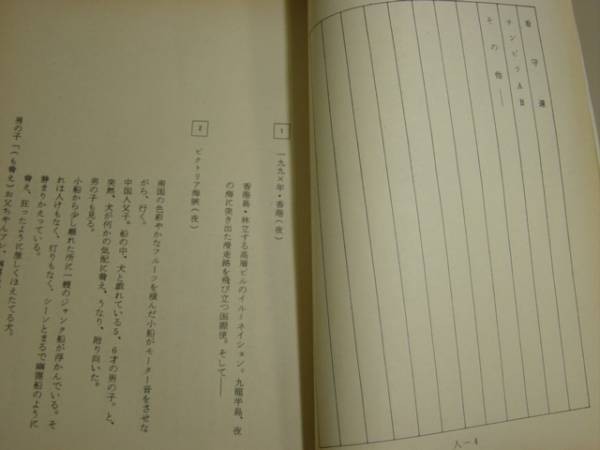 看守達
チンピラAB
その他——
人—4
1 一九九×年・香港(夜)
香港島・林立する高層ビルのイルーネイション。九龍半島、夜
の海に突き出た滑走路を飛び立つ国際便。そして——
2 ビクトリア海峡(夜)
南国の色彩やかなフルーツを積んだ小船がモーター音をさせな
がら、行く。
中国人父子。船の中、犬と戯れている5、6才の男の子。と、
突然、犬が何かの気配に脅え、うなり、附り向いた。
男の子も見る。
小船から少し離れた所に一艘のジャンク船が浮かんでいる。そ
れは人けもなく、灯りもなく、シーンとまるで幽霊船のように
静まりかえっている。
脅え、狂ったように激しくほえたてる犬。
男の子「(も脅え)お父ちゃんアレ、幽霊